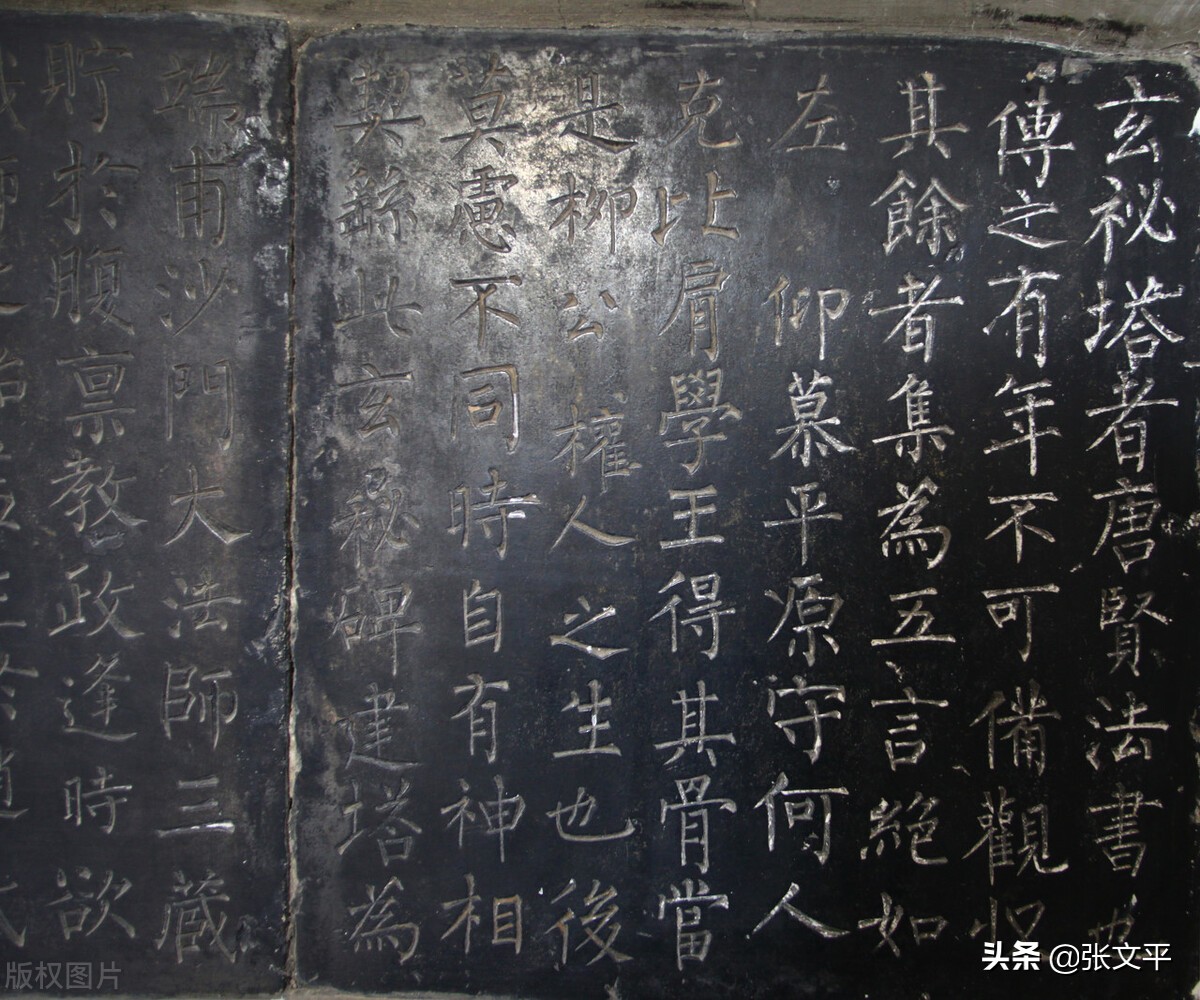 玄祕塔者唐賢法書
傳之有年不可備觀
其餘者集為五言絕如
左 仰慕平原守何人
克比肩學王得其骨當
是柳公權人之生也後
莫慮不同時自有神相
契繇此玄祕碑建塔為
端甫沙門大法師三藏
貯於腹禀教政逢時欲
版权图片
头条 @张文平